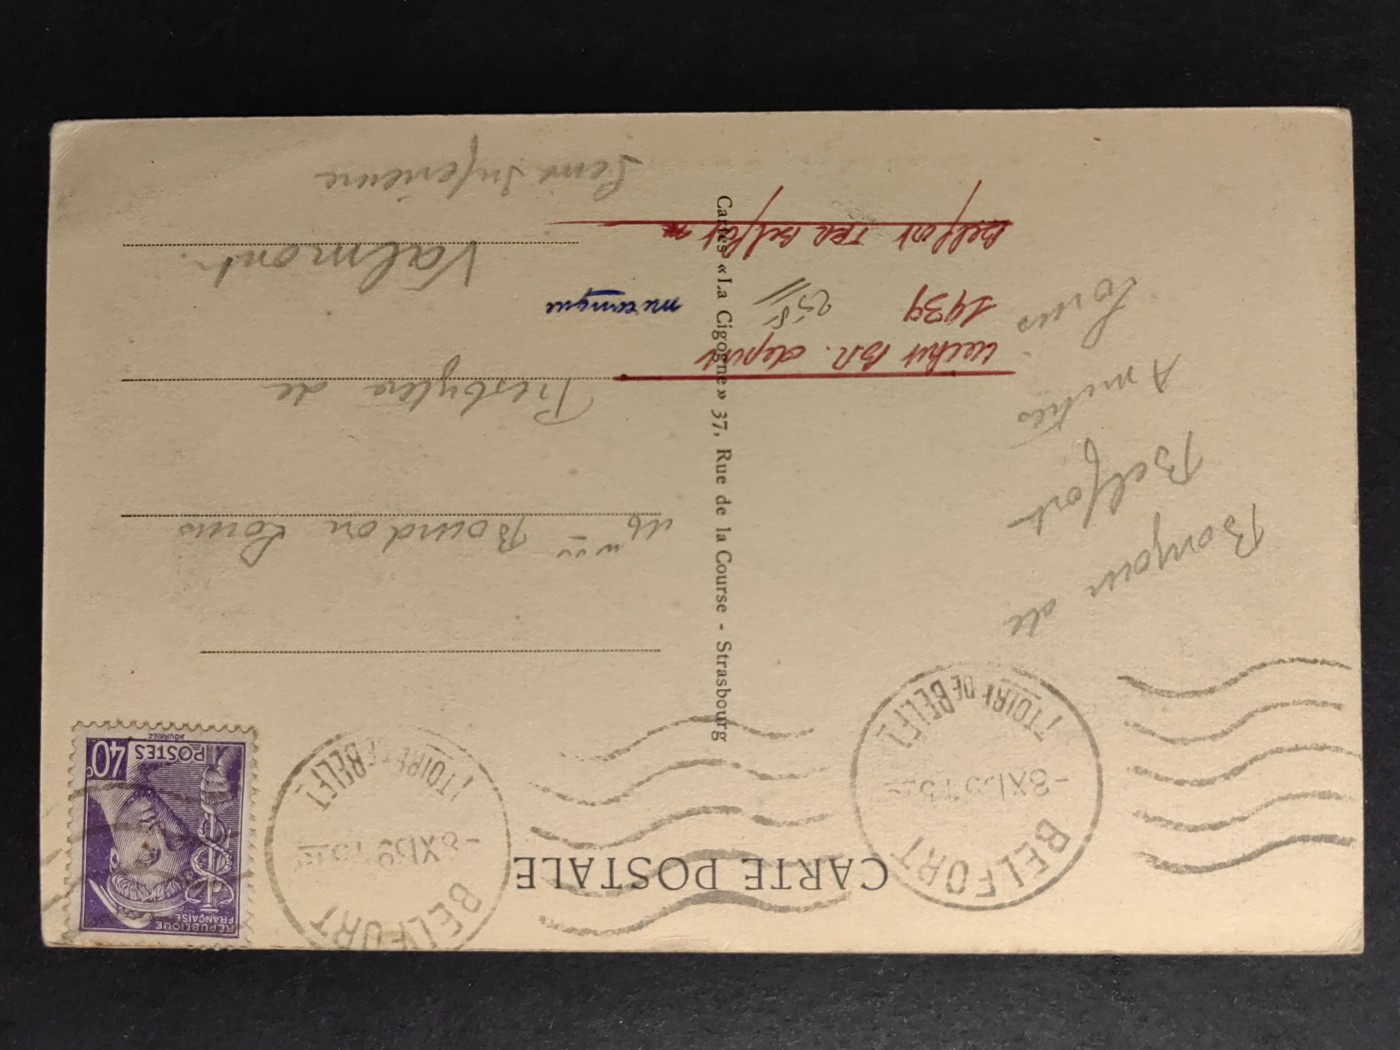 CARTE POSTALE
BELFORT
-8 XI 39
TOIRE DE BELFT
BELFORT
-8 XI 39
TOIRE DE BELFT
REPUBLIQUE
FRANÇAISE
POSTES
40c
Bonjour de
Belfort
Amitiés
Louis
Cartes « La Cigogne » 37, Rue de la Course - Strasbourg
Bourdon Louis
Presbytère de
Valmont.
Seine Inférieure
depuis
1939
Belfort Belfort
mécanique